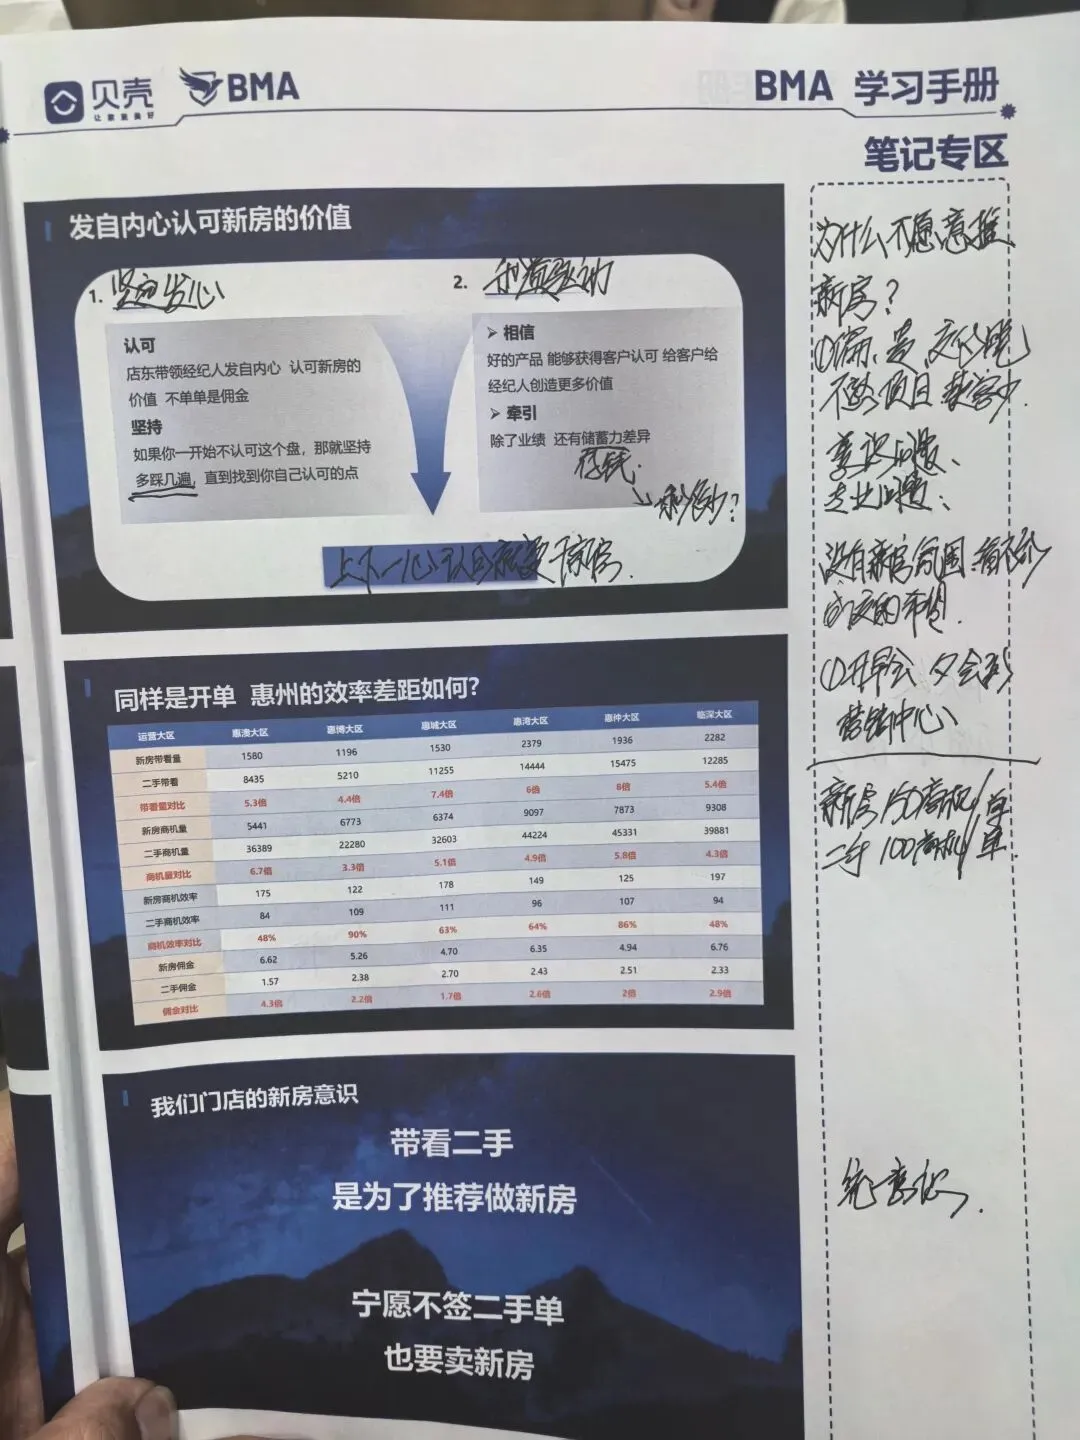 贝壳
让家更美好
BMA
BMA 学习手册
笔记专区
发自内心认可新房的价值
1. 坚定发心
2. 利润驱动
认可
店东带领经纪人发自内心 认可新房的
价值 不单单是佣金
坚持
如果你一开始不认可这个盘，那就坚持
多踩几遍，直到找到你自己认可的点
➢ 相信
好的产品 能够获得客户认可 给客户给
经纪人创造更多价值
➢ 牵引
除了业绩 还有储蓄力差异
存钱.
多少?
上下一心认可就要干新房.
同样是开单 惠州的效率差距如何?
运营大区 惠澳大区 惠博大区 惠城大区 惠湾大区 惠仲大区 临深大区
新房带看量 1580 1196 1530 2379 1936 2282
二手带看 8435 5210 11255 14444 15475 12285
带看量对比 5.3倍 4.4倍 7.4倍 6倍 8倍 5.4倍
新房商机量 5441 6773 6374 9097 7873 9308
二手商机量 36389 22280 32603 44224 45331 39881
商机量对比 6.7倍 3.3倍 5.1倍 4.9倍 5.8倍 4.3倍
新房商机效率 175 122 178 149 125 197
二手商机效率 84 109 111 96 107 94
商机效率对比 48% 90% 63% 64% 86% 48%
新房佣金 6.62 5.26 4.70 6.35 4.94 6.76
二手佣金 1.57 2.38 2.70 2.43 2.51 2.33
佣金对比 4.3倍 2.2倍 1.7倍 2.6倍 2倍 2.9倍
我们门店的新房意识
带看二手
是为了推荐做新房
宁愿不签二手单
也要卖新房
为什么不愿意推
新房?
①偏、贵、交付晚
不熟项目 获客少.
意识问题、
专业问题、
没有新房氛围 看不到
成交的希望.
①开早会 夕会到
营销中心、
新房150商机/单
二手 100商机/单.
统一意识.